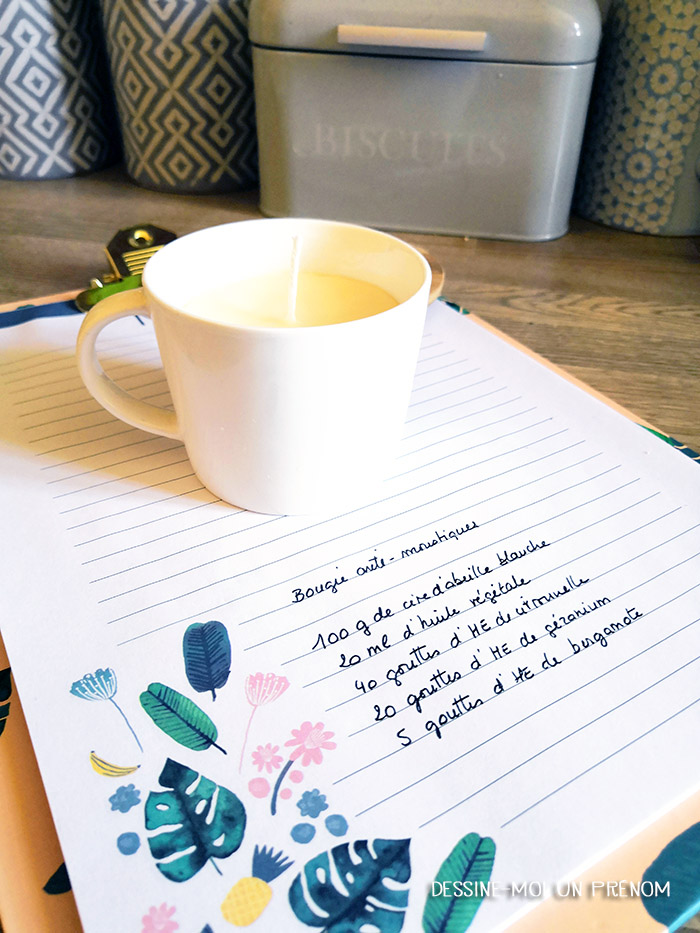 BISCUITS
Bougie anti-moustiques
100 g de cire d'abeille blanche
20 ml d'huile végétale
40 gouttes d'HE de citronnelle
20 gouttes d'HE de géranium
5 gouttes d'HE de bergamote
DESSINE-MOI UN PRENOM